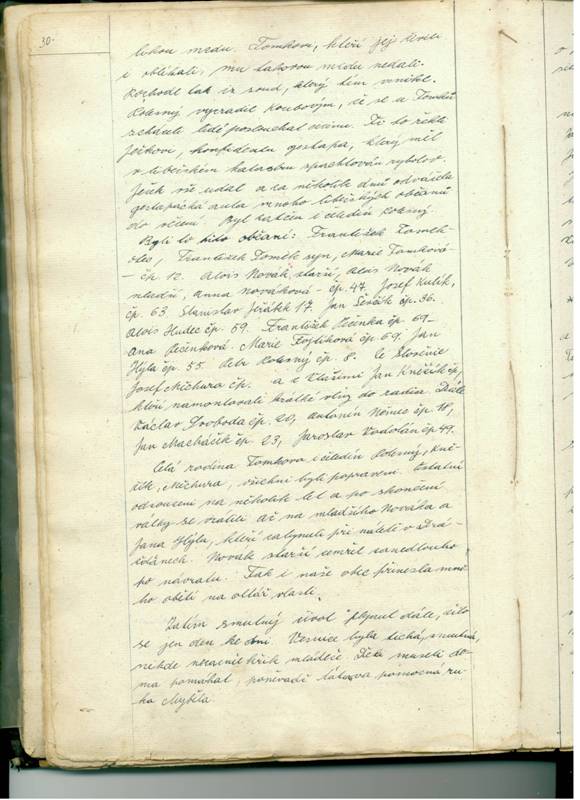 30.
Tomkovi, kteří jej živili
i oblékali, mu takovou mzdu nedali.
Rozhodl tak i soud, který tím vznikl.
Kolesný vyzradil soudovým, že se u Tomků
scházeli lidé poslouchat cizinu. Ti to řekli
Ješkovi, konfidentu gestapa, který měl
v libčickém katastru rybolov.
Ješk vše udal a za několik dnů odvážela
gestapácká auta mnoho libčických občanů
do vězení. Byl zatčen i čeledín Kolesný
Byli to tito občané: František Tomek
otec, František Tomek syn, Marie Tomková
- čp. 12. Alois Novák starší, Alois Novák
mladší, Anna Nováková - čp. 47. Josef Kulík,
čp. 63. Stanislav Jirásek 17. Jan Ševčík čp. 36.
Alois Hudec čp. 59. František Pečenka čp. 69 -
Ana Pečenková. Marie Fojtíková čp. 69. Jan
Hýla čp. 55. Petr Kolesný čp. 8. Ze Slovenie
Josef Michura čp. a z Klušími Jan Kněžík čp,
kteří namontovali krátké vlny do radia. Dále
Václav Svoboda čp. 20, Antonín Němec čp. 18,
Jan Macháčík čp. 23, Jaroslav Vodolán čp. 49.
Celá rodina Tomkova i čeledín Kolesný, Kně-
žík, Michura, všichni byli popraveni. Ostatní
odsouzeni na několik let a po skončení
války se vrátili až na mladšího Nováka a
Jana Hýlu, kteří zahynuli při náletu v Dráž-
ďanech. Novák starší zemřel zanedlouho
po návratu. Tak i naše obec přinesla mno-
ho obětí na oltář vlasti.
Zatím smutný život plynul dále, žilo
se jen den ke dni. Vesnice byla tichá, smutná,
nikde nezazněl křik mládeže. Děti musely do-
ma pomáhat, poněvadž tátova pomocná ru-
ka chyběla.